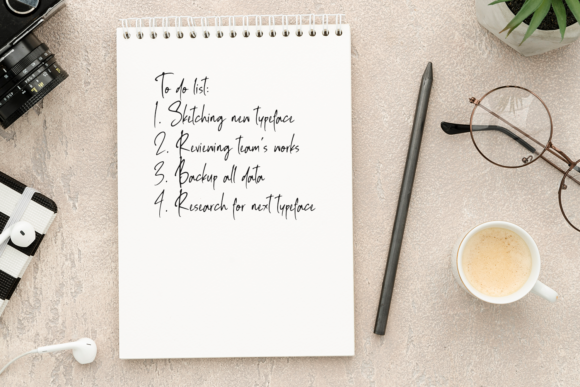 To do list:
1. Sketching new typeface
2. Reviewing team's works
3. Backup all data
4. Research for next typeface